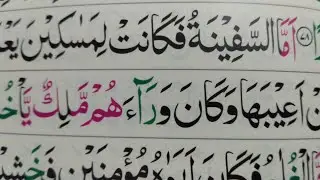 اَمَّا السَّفِيْنَةُ فَكَانَتْ لِمَسٰكِيْنَ
اَعِيْبَهَا وَكَانَ وَرَآءَهُمْ مَّلِكٌ
الْغُلٰمُ فَكَانَ اَبَوٰهُ مُؤْمِنَيْنِ